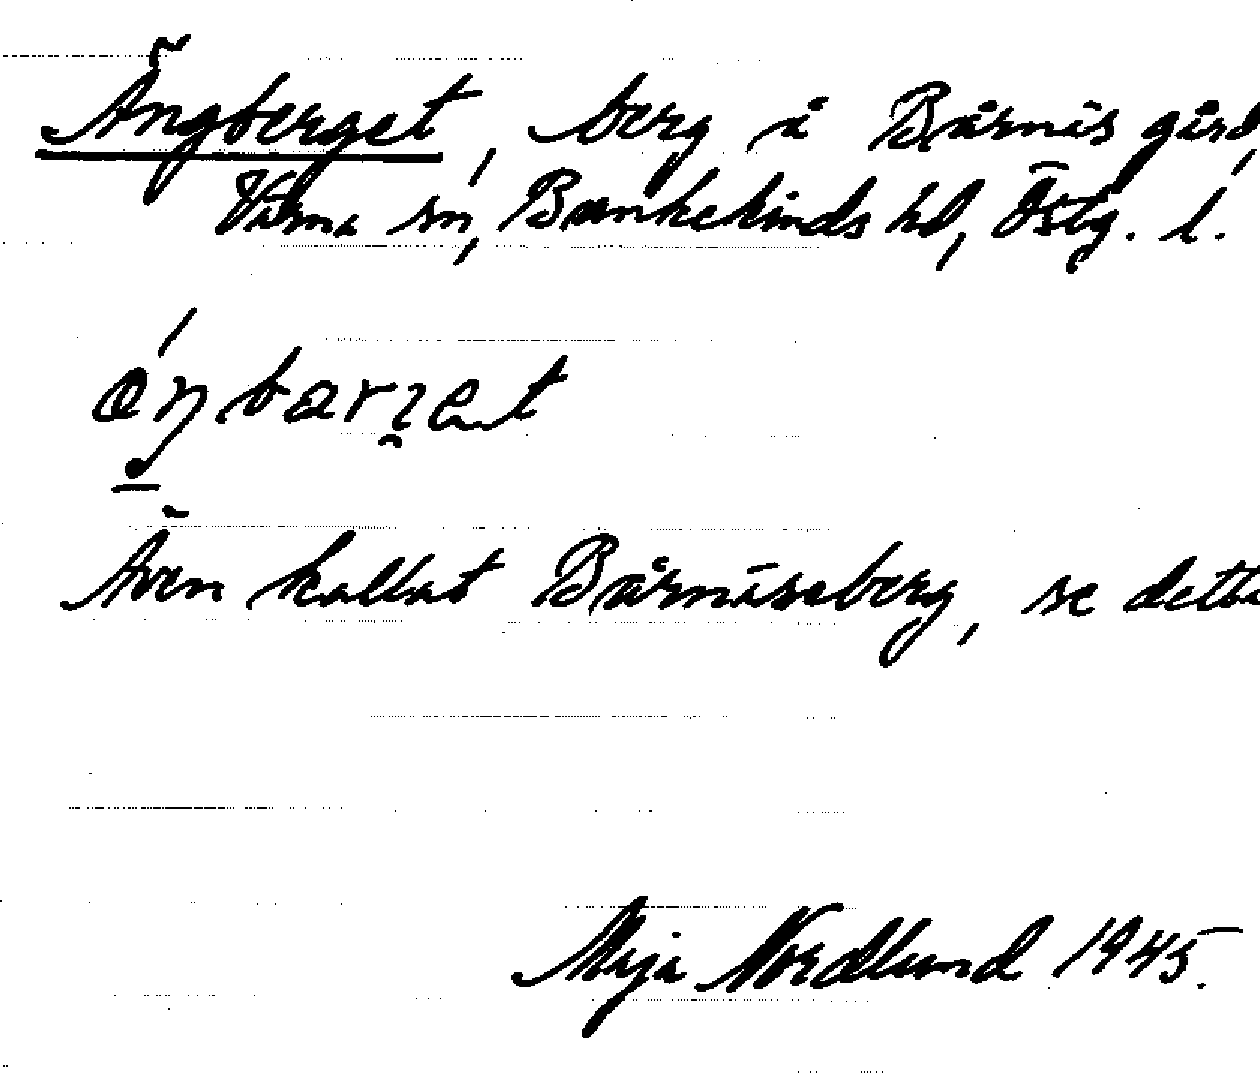 Ängberget, berg å Bårnäs gård,
Värna sn, Bankekinds hd, Östg. l.
Även kallat Bårnäseberg, se detta
Maja Nordlund 1945.